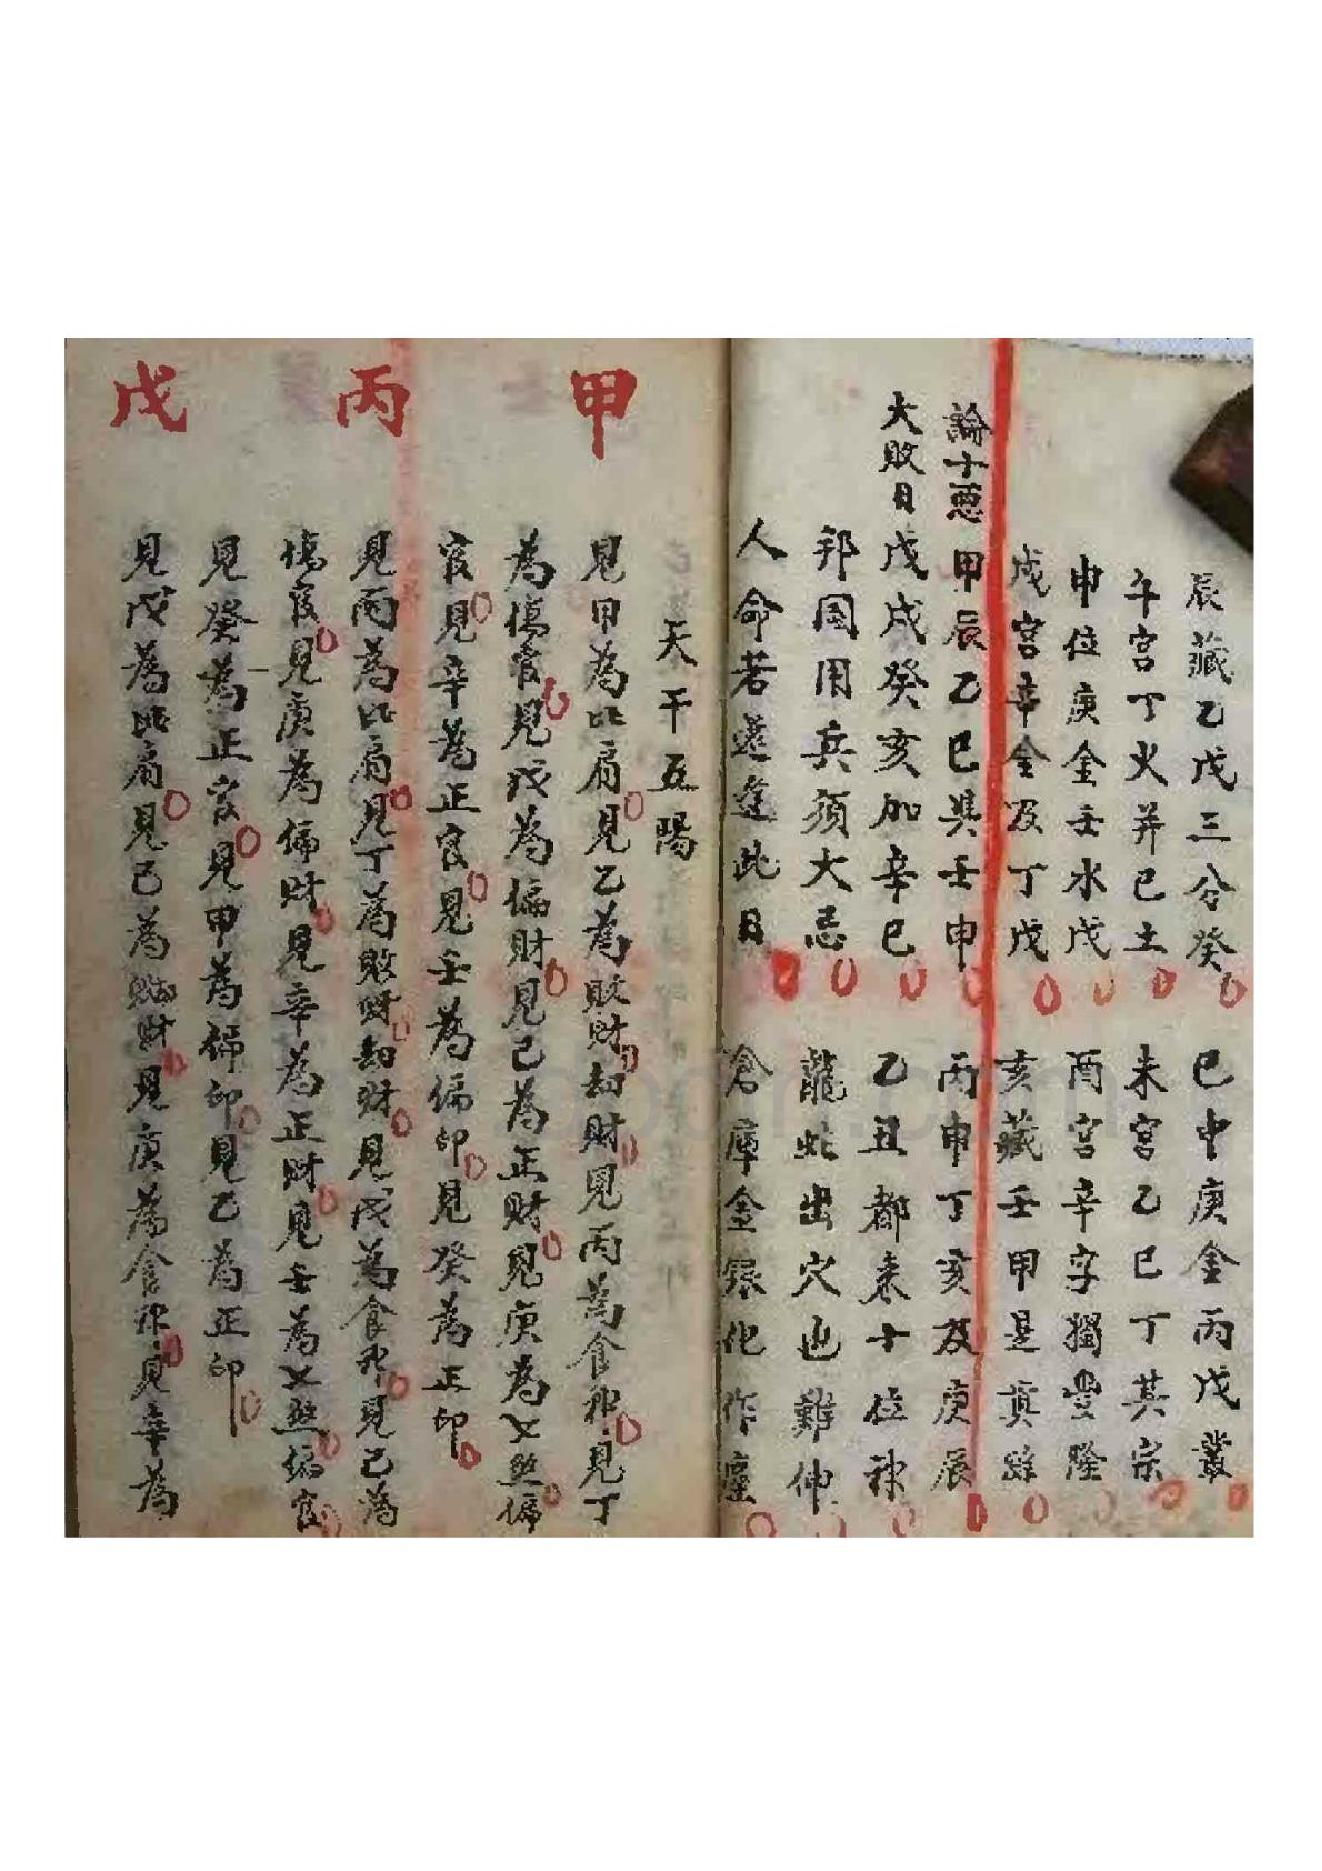 辰藏乙戊三分癸　巳中庚金丙戊叢
午宮丁火并己土　未宮乙己丁其宗
申位庚金壬水戊　酉宮辛字獨豐隆
戌宮辛金及丁戊　亥藏壬甲是真踪
論十惡　甲辰乙巳與壬申　丙申丁亥及庚辰
大敗日　戊戌癸亥加辛巳　乙丑都來十位神
邦国用兵須大忌　龍蛇出穴也難伸
人命若還逢此日　倉庫金銀化作塵
天干五陽
甲
見甲為比肩見乙為敗財劫財見丙為食神見丁
為傷官見戊為偏財見己為正財見庚為七煞偏
官見辛為正官見壬為偏印見癸為正印
丙
見丙為比肩見丁為敗財劫財見戊為食神見己為
傷官見庚為偏財見辛為正財見壬為七煞偏官
見癸為正官見甲為偏印見乙為正印
戊
見戊為比肩見己為財見庚為食神見辛為